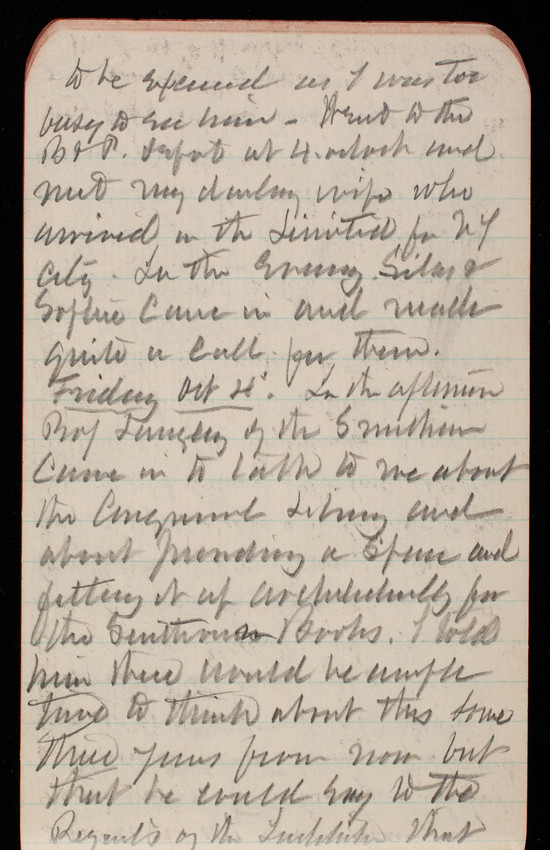 to be excused as I was too
busy to see him - Went to the
B & P. depot at 4. oclock and
met my darling wife who
arrived in the Limited for NY
City. In the Evening Silas &
Sophie Came in and made
quite a Call for them.
Friday Oct 4". In the afternoon
Prof Langley of the Smithson
Came in to talk to me about
the Congressnl Library and
about providing a Space and
fitting it up architecturally for
the Smithson Books. I told
him there would be ample
time to think about this some
three years from now but
that he could say to the
Regents of the Institute that